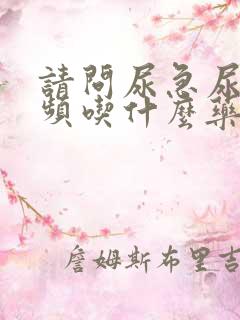 請問尿急尿
頻喫什麼藥
詹姆斯布里吉